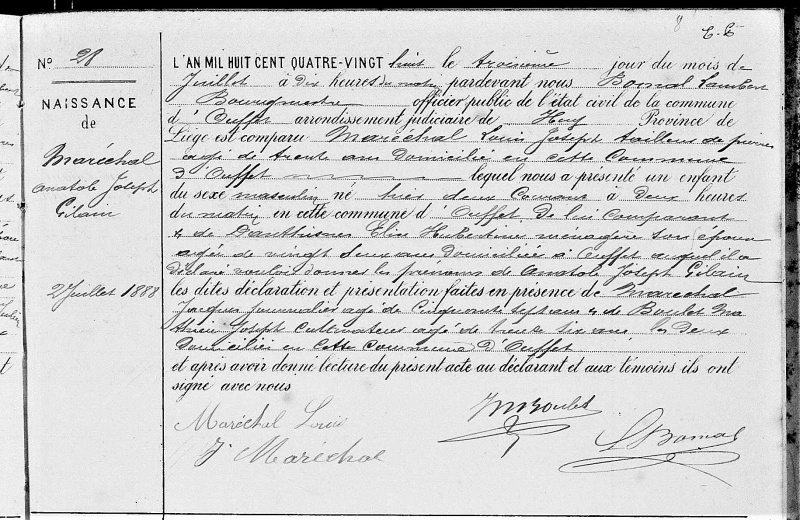 N° 28
NAISSANCE
de
Maréchal
Anatole Joseph
Gilain
2 Juillet 1888
L'AN MIL HUIT CENT QUATRE-VINGT huit le troisième jour du mois de
Juillet à dix heures du matin pardevant nous Bomal Lambert
Bourgmestre officier public de l'état civil de la commune
d'Ouffet arrondissement judiciaire de Huy Province de
Liége est comparu Maréchal Louis Joseph tailleur de pierres
agé de trente ans domicilié en cette Commune
D'Ouffet lequel nous a présenté un enfant
du sexe masculin né hier deux Courant à deux heures
du matin en cette commune d'Ouffet De lui Comparant
& de Danthisnes Elise Hubertine ménagère son épouse
agée de vingt deux ans domiciliée à Ouffet auquel il a
déclaré vouloir donner les prénoms de Anatole Joseph Gilain
les dites déclaration et présentation faites en présence de Maréchal
Jacques Journalier agé de Cinquante sept ans & de Boulet
Joseph Cultivateur agé de trente six ans Deux
Domiciliés en Cette Commune D'Ouffet
et après avoir donné lecture du présent acte au déclarant et aux témoins ils ont
signé avec nous
Maréchal Louis
J Maréchal
Boulet
L Bomal